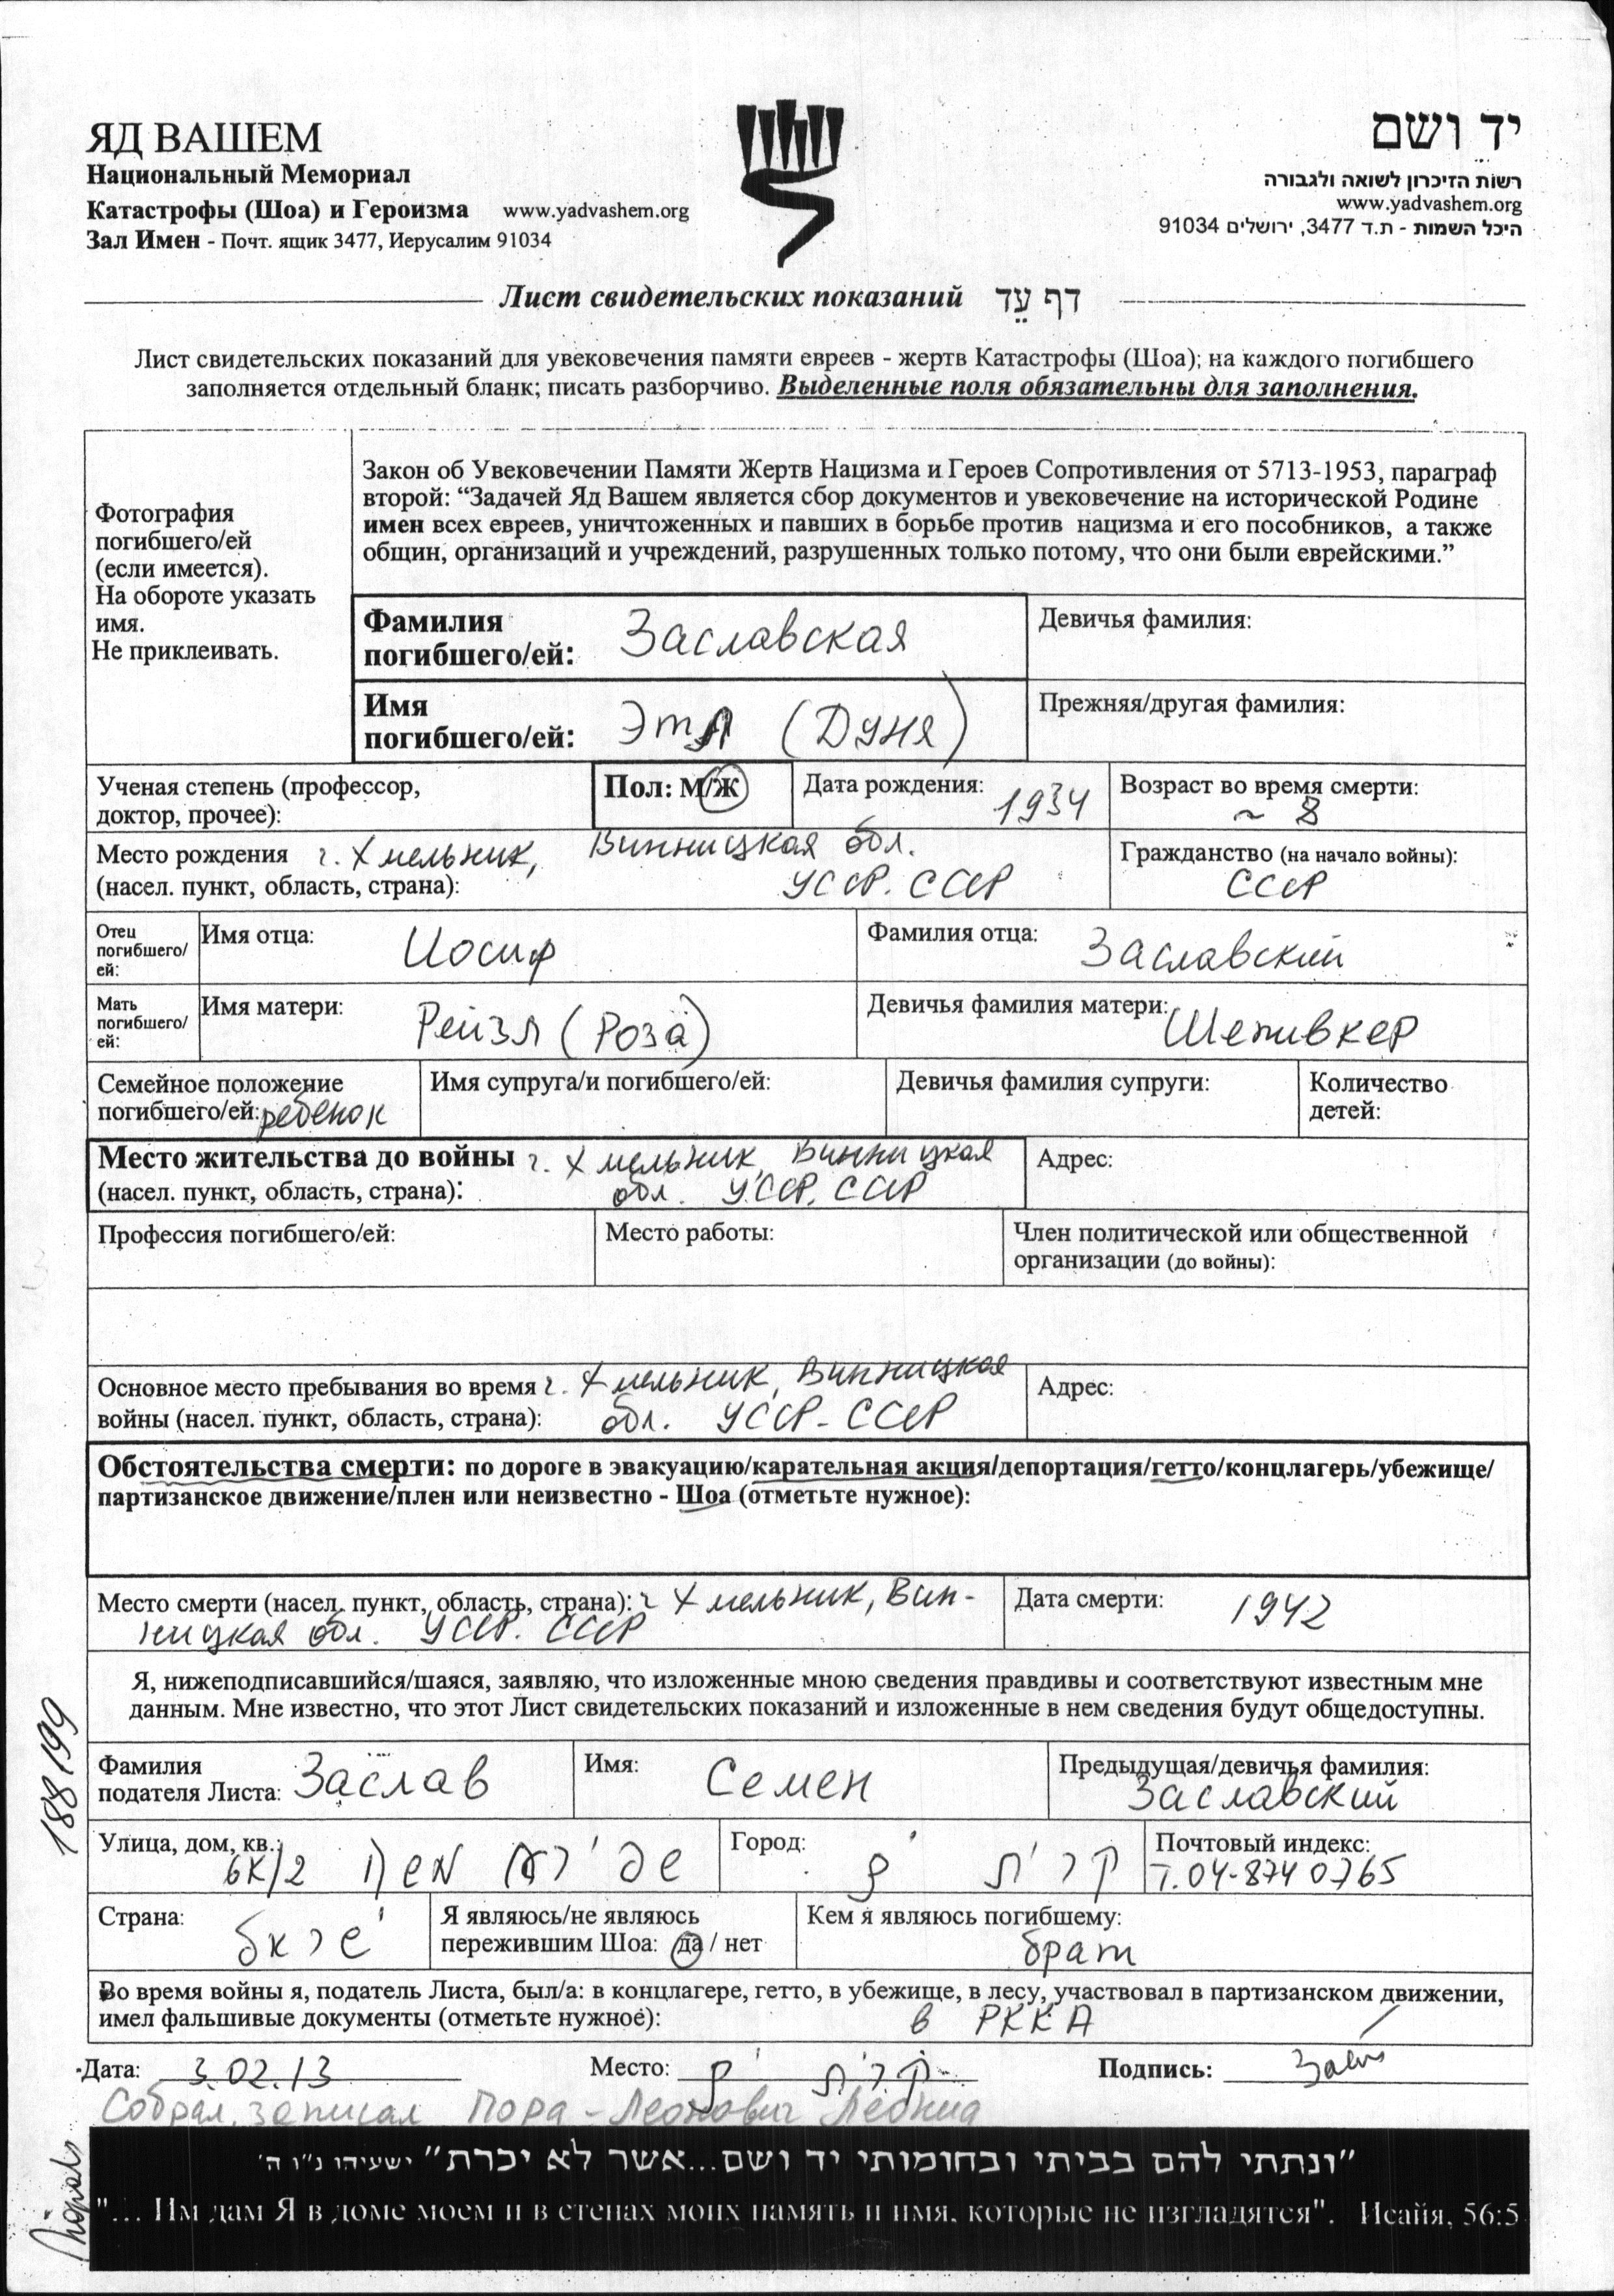 ЯД ВАШЕМ
Национальный Мемориал
Катастрофы (Шоа) и Героизма www.yadvashem.org
Зал Имен - Почт. ящик 3477, Иерусалим 91034
יד ושם
רשות הזיכרון לשואה ולגבורה
www.yadvashem.org
היכל השמות - ת.ד 3477, ירושלים 91034
Лист свидетельских показаний דף עֵד
Лист свидетельских показаний для увековечения памяти евреев - жертв Катастрофы (Шоа); на каждого погибшего
заполняется отдельный бланк; писать разборчиво. Выделенные поля обязательны для заполнения.
Фотография
погибшего/ей
(если имеется).
На обороте указать
имя.
Не приклеивать.
Закон об Увековечении Памяти Жертв Нацизма и Героев Сопротивления от 5713-1953, параграф
второй: “Задачей Яд Вашем является сбор документов и увековечение на исторической Родине
имен всех евреев, уничтоженных и павших в борьбе против нацизма и его пособников, а также
общин, организаций и учреждений, разрушенных только потому, что они были еврейскими.”
Фамилия
погибшего/ей: Заславская
Девичья фамилия:
Имя
погибшего/ей: Этл (Дуня)
Прежняя/другая фамилия:
Ученая степень (профессор,
доктор, прочее):
Пол: М/Ж
Дата рождения: 1934
Возраст во время смерти:
~ 8
Место рождения г. Хмельник, Винницкая обл.
(насел. пункт, область, страна): УССР. СССР
Гражданство (на начало войны):
СССР
Отец
погибшего/
ей:
Имя отца: Иосиф
Фамилия отца: Заславский
Мать
погибшего/
ей:
Имя матери: Рейзл (Роза)
Девичья фамилия матери: Шепивкер
Семейное положение
погибшего/ей: ребенок
Имя супруга/и погибшего/ей:
Девичья фамилия супруги:
Количество
детей:
Место жительства до войны г. Хмельник, Винницкая
(насел. пункт, область, страна): обл. УССР. СССР
Адрес:
Профессия погибшего/ей:
Место работы:
Член политической или общественной
организации (до войны):
Основное место пребывания во время г. Хмельник, Винницкая
войны (насел. пункт, область, страна): обл. УССР-СССР
Адрес:
Обстоятельства смерти: по дороге в эвакуацию/карательная акция/депортация/гетто/концлагерь/убежище/
партизанское движение/плен или неизвестно - Шоа (отметьте нужное):
Место смерти (насел. пункт, область, страна): г Хмельник, Вин-
ницкая обл. УССР. СССР
Дата смерти: 1942
Я, нижеподписавшийся/шаяся, заявляю, что изложенные мною сведения правдивы и соответствуют известным мне
данным. Мне известно, что этот Лист свидетельских показаний и изложенные в нем сведения будут общедоступны.
188199
Фамилия
подателя Листа: Заслав
Имя: Семен
Предыдущая/девичья фамилия:
Заславский
Улица, дом, кв.:
Город: קרית ים
Почтовый индекс:
Т. 04-8740765
Страна:
Я являюсь/не являюсь
пережившим Шоа: да / нет
Кем я являюсь погибшему:
брат
Во время войны я, податель Листа, был/а: в концлагере, гетто, в убежище, в лесу, участвовал в партизанском движении,
имел фальшивые документы (отметьте нужное): в РККА
Дата: 3.02.13 Место: קרית ים Подпись:
Собрал, записал Пора-Леонович Леонид
"ונתתי להם בביתי ובחומותי יד ושם...אשר לא יכרת" ישעיהו נ"ו ה'
"... Им дам Я в доме моем и в стенах моих память и имя, которые не изгладятся". Исайя, 56:5